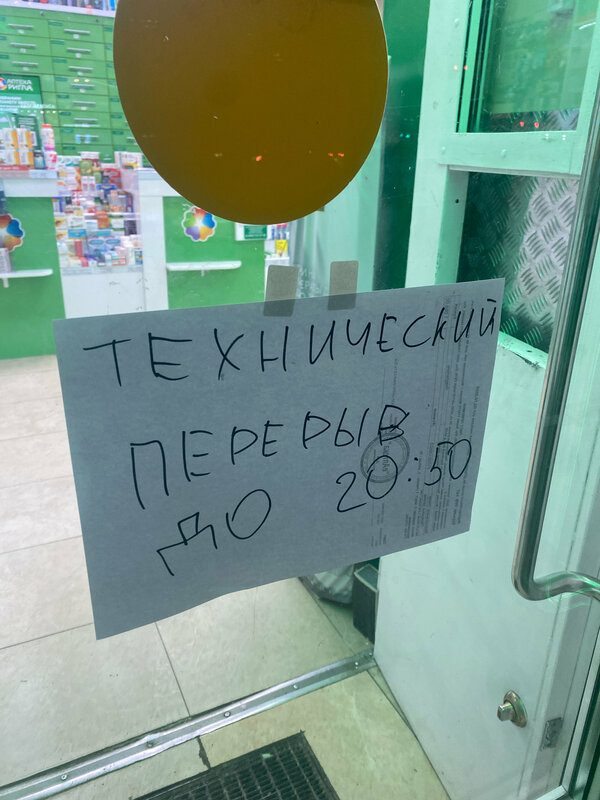 АПТЕКА
РИГЛА
ТЕХНИЧЕСКИЙ
ПЕРЕРЫВ
ДО 20:50